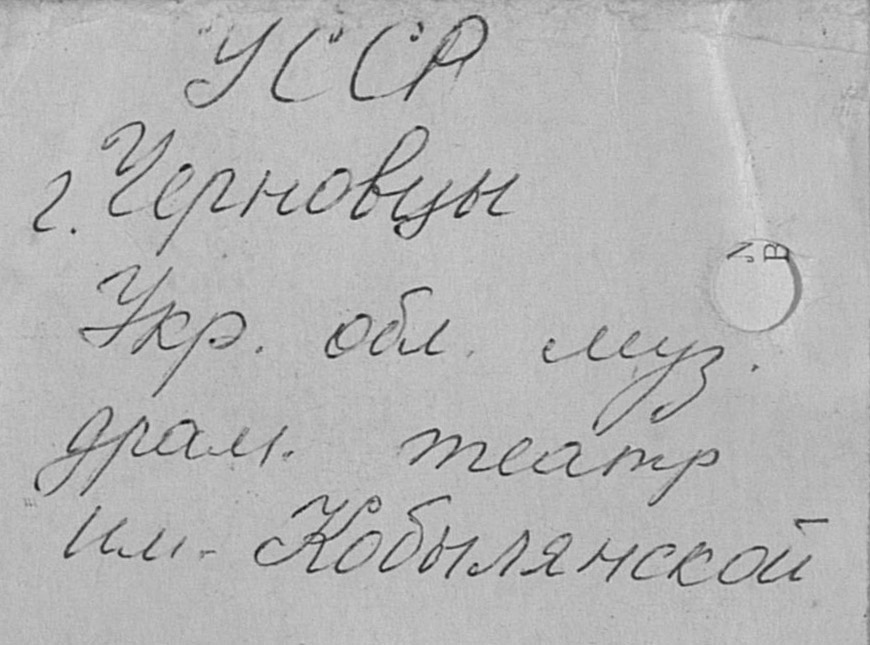 УССР
г. Черновцы
Укр. обл. муз.
драм. театр
им. Кобылянской